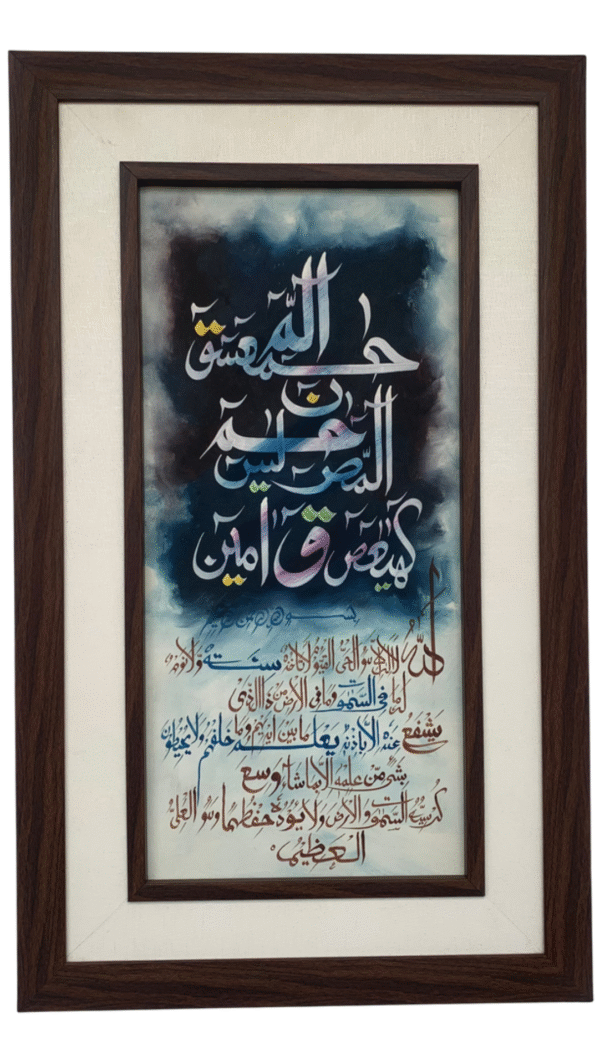 الٓمّٓ
حٰمٓعٓسٓقٓ
نٓ
حٰمٓ
الٓمّٓصٓ يٰسٓ
كٓهٰيٰعٓصٓ قٓ اٰمين
اللّٰهُ لا اله الا هو الحي القيوم لا تاخذه سنة ولا نوم
له ما في السمٰوٰت وما في الارض من ذا الذي
يشفع عنده الا باذنه يعلم ما بين ايديهم وما خلفهم ولا يحيطون
بشئ من علمه الا بما شاء وسع
كرسيه السمٰوٰت والارض ولا يؤده حفظهما وهو العلي
العظيم